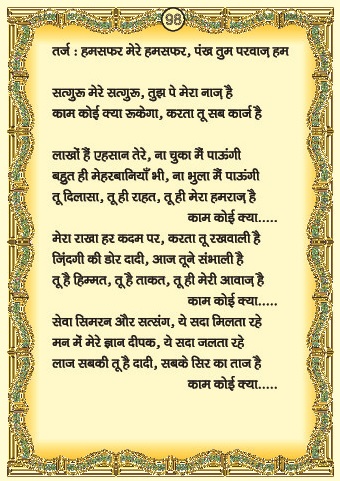 98
तर्ज : हमसफर मेरे हमसफर, पंख तुम परवाज़ हम
सत्गुरु मेरे सत्गुरु, तुझ पे मेरा नाज़ है
काम कोई क्या रूकेगा, करता तू सब कार्ज है
लाखों हैं एहसान तेरे, ना चुका मैं पाऊंगी
बहुत ही मेहरबानियाँ भी, ना भुला मैं पाऊंगी
तू दिलासा, तू ही राहत, तू ही मेरा हमराज़ है
काम कोई क्या.....
मेरा राखा हर कदम पर, करता तू रखवाली है
ज़िंदगी की डोर दादी, आज तूने संभाली है
तू है हिम्मत, तू है ताकत, तू ही मेरी आवाज़ है
काम कोई क्या.....
सेवा सिमरन और सत्संग, ये सदा मिलता रहे
मन में मेरे ज्ञान दीपक, ये सदा जलता रहे
लाज सबकी तू है दादी, सबके सिर का ताज है
काम कोई क्या.....